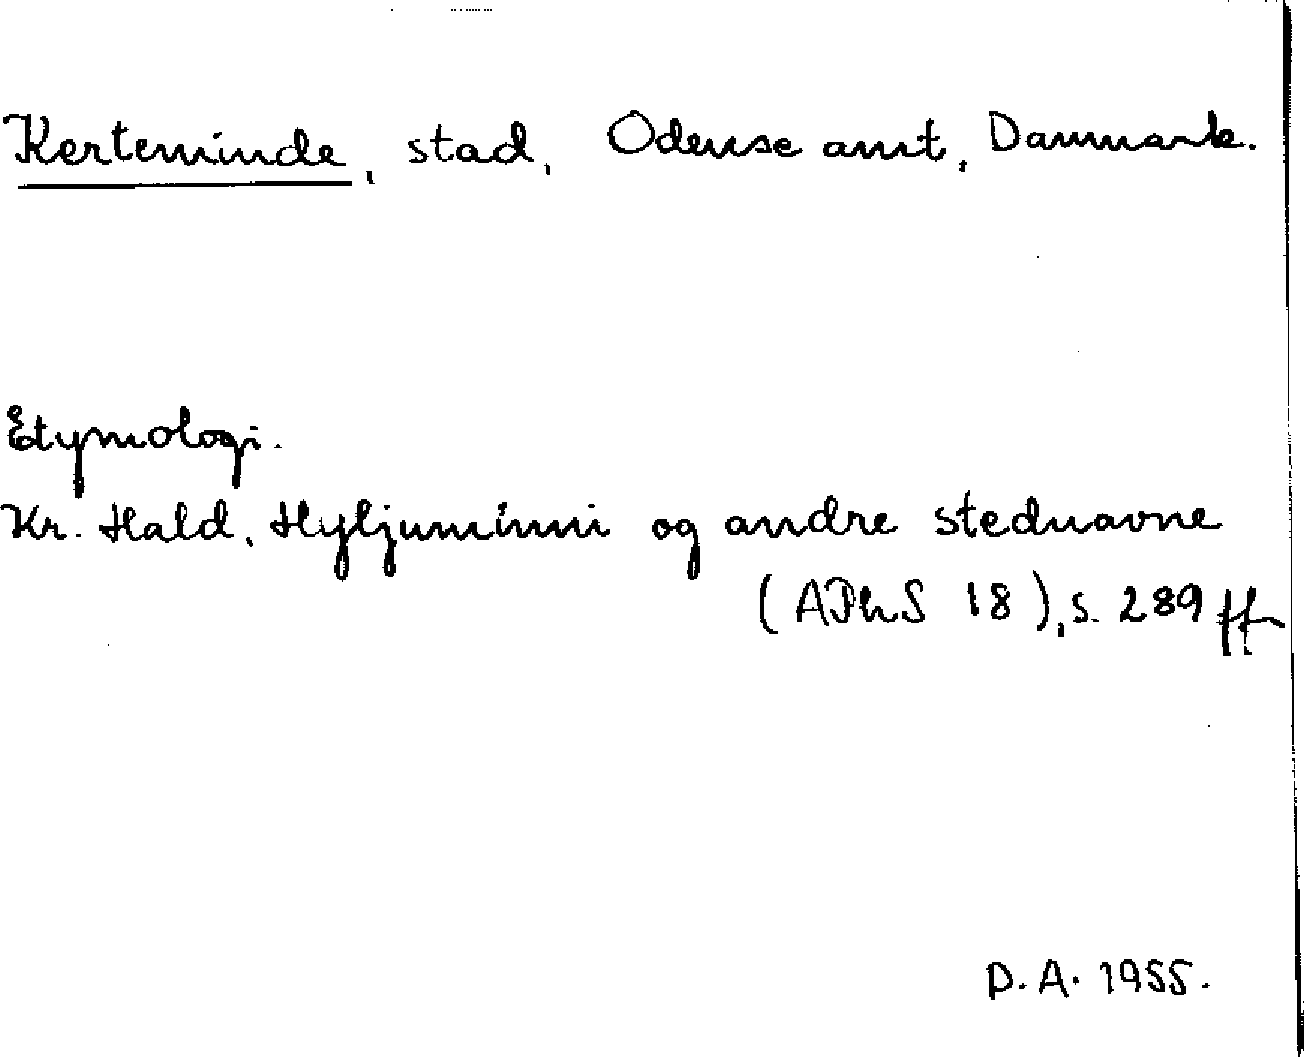 Kerteminde, stad, Odense amt, Danmark.
Etymologi.
Kr. Hald, Hyljuminni og andre stednavne
(APhS 18), s. 289 ff
D. A. 1955.